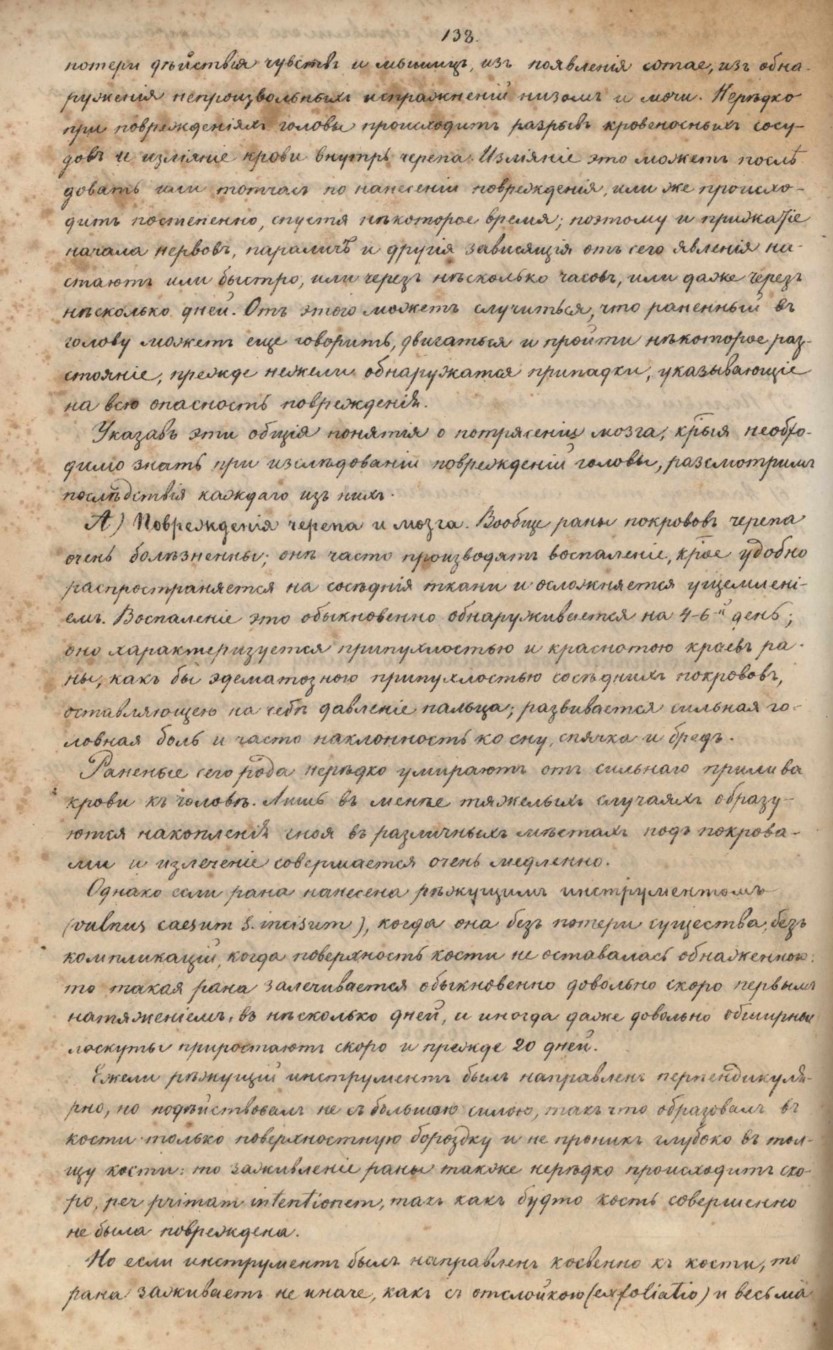 138.
потери дѣйствія чувствъ и мышицъ, изъ появленія sopoae, изъ обна-
руженія непроизвольныхъ испражненій низомъ и мочи. Нерѣдко
при поврежденіяхъ головы происходитъ разрывъ кровеносныхъ сосу-
довъ и изліяніе крови внутрь черепа. Изліяніе это можетъ послѣ
довать или тотчасъ по нанесеніи поврежденія, или же происхо-
дитъ постепенно, спустя нѣкоторое время; поэтому и прижатіе
начала нервовъ, параличъ и другія зависящія отъ сего явленія на-
стаютъ или быстро, или черезъ нѣсколько часовъ, или даже черезъ
нѣсколько дней. Отъ этого можетъ случиться, что раненный въ
голову можетъ еще говорить, двигаться и пройти нѣкоторое раз-
стояніе, прежде нежели обнаружатся припадки, указывающіе
на всю опасность поврежденія.
Указавъ эти общія понятія о потрясеніи мозга, крыя необхо-
димо знать при изслѣдованіи поврежденій головы, разсмотримъ
послѣдствія каждаго изъ нихъ.
А) Поврежденія черепа и мозга. Вообще раны покрововъ черепа
очень болѣзненны; онѣ часто производятъ воспаленіе, крое удобно
распространяется на сосѣднія ткани и осложняется ущемлені-
емъ. Воспаленіе это обыкновенно обнаруживается на 4-6-й день;
оно характеризуется припухлостью и краснотою краевъ ра-
ны, какъ бы эдематозною припухлостью сосѣднихъ покрововъ,
оставляющею на себѣ давленіе пальца; развивается сильная го-
ловная боль и часто наклонность ко сну, спячка и бредъ.
Раненые сего рода нерѣдко умираютъ отъ сильнаго прилива
крови къ головѣ. Лишь въ менѣе тяжелыхъ случаяхъ образу-
ются накопленія гноя въ различныхъ мѣстахъ подъ покрова-
ми и излеченіе совершается очень медленно.
Однако если рана нанесена рѣжущимъ инструментомъ
(vulnus caesum s. incisum), когда она безъ потери существа, безъ
компликацій, когда поверхность кости не оставалась обнаженною:
то такая рана залечивается обыкновенно довольно скоро первымъ
натяженіемъ, въ нѣсколько дней, и иногда даже довольно обширные
лоскуты приростаютъ скоро и прежде 20 дней.
Ежели рѣжущій инструментъ былъ направленъ перпендикуля-
рно, но подѣйствовалъ не съ большою силою, такъ что образовалъ въ
кости только поверхностную бороздку и не проникъ глубоко въ тол-
щу кости: то заживленіе раны также нерѣдко происходитъ ско-
ро, per primam intentionem, такъ какъ будто кость совершенно
не была повреждена.
Но если инструментъ былъ направленъ косвенно къ кости, то
рана заживаетъ не иначе, какъ съ отслойкою (exfoliatio) и весьма